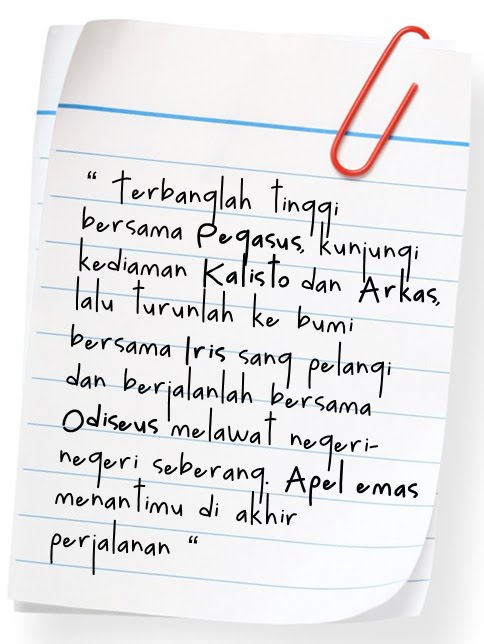 “ Terbanglah tinggi
bersama Pegasus, kunjungi
kediaman Kalisto dan Arkas,
lalu turunlah ke bumi
bersama Iris sang pelangi
dan berjalanlah bersama
Odiseus melawat negeri-
negeri seberang. Apel emas
menantimu di akhir
perjalanan “